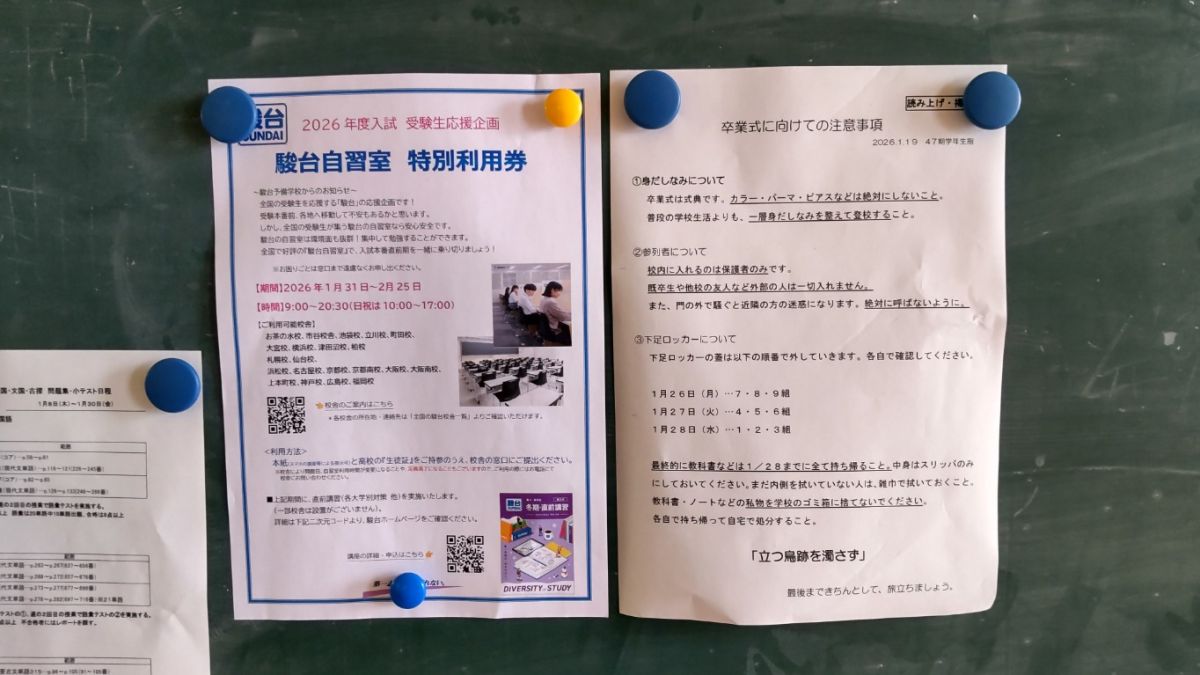 国・文国・古探 問題集・小テスト日程
1月8日(木)～1月30日(金)
範囲
範囲
範囲
駿台
SUNDAI
2026年度入試 受験生応援企画
駿台自習室 特別利用券
～駿台予備学校からのお知らせ～
全国の受験生を応援する「駿台」の応援企画です！
受験本番前、各地へ移動して不安もあるかと思います。
しかし、全国の受験生が集う駿台の自習室なら安心安全です。
駿台の自習室は環境面も抜群！集中して勉強することができます。
全国で好評の『駿台自習室』で、入試本番直前期を一緒に乗り切りましょう！
※お困りごとは窓口まで遠慮なくお申し出ください。
【期間】2026年1月31日～2月25日
【時間】9:00～20:30(日祝は10:00～17:00)
【ご利用可能校舎】
お茶の水校、市谷校舎、池袋校、立川校、町田校、
大宮校、横浜校、津田沼校、柏校
札幌校、仙台校、
浜松校、名古屋校、京都校、京都南校、大阪校、大阪南校、
上本町校、神戸校、広島校、福岡校
校舎のご案内はこちら
*各校舎の所在地・連絡先は「全国の駿台校舎一覧」よりご確認いただけます。
<利用方法>
本紙(スマホの画像等による提示可)と高校の『生徒証』をご持参のうえ、校舎の窓口にご提出ください。
※校舎により開館日、自習室利用時間が変更になることや、満席満了になることもございますので、ご利用の際にはお電話にて
校舎にお問い合わせください。
■上記期間に、直前講習(各大学別対策 他)を実施いたします。
(一部校舎は設置がございません)。
詳細は下記二次元コードより、駿台ホームページをご確認ください。
講座の詳細・申込はこちら
駿台
冬期・直前講習
DIVERSITY of STUDY
読み上げ・掲
卒業式に向けての注意事項
2026.1.19 47期学年生指
①身だしなみについて
卒業式は式典です。カラー・パーマ・ピアスなどは絶対にしないこと。
普段の学校生活よりも、一層身だしなみを整えて登校すること。
②参列者について
校内に入れるのは保護者のみです。
既卒生や他校の友人など外部の人は一切入れません。
また、門の外で騒ぐと近隣の方の迷惑になります。絶対に呼ばないように。
③下足ロッカーについて
下足ロッカーの蓋は以下の順番で外していきます。各自で確認してください。
1月26日(月)…7・8・9組
1月27日(火)…4・5・6組
1月28日(水)…1・2・3組
最終的に教科書などは1／28までに全て持ち帰ること。中身はスリッパのみ
にしておいてください。まだ内側を拭いていない人は、雑巾で拭いておくこと。
教科書・ノートなどの私物を学校のゴミ箱に捨てないでください。
各自で持ち帰って自宅で処分すること。
「立つ鳥跡を濁さず」
最後まできちんとして、旅立ちましょう。